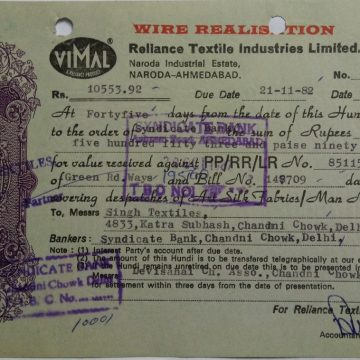 WIRE REALISATION
VIMAL
A RELIANCE PRODUCT
Reliance Textile Industries Limited.
Naroda Industrial Estate,
NARODA-AHMEDABAD.
No.
Rs. 10553.92 Due Date 21-11-82 Date
At Fortyfive days from the date of this Hun
to the order of Syndicate Bank, the sum of Rupees
five hundred fifty three and paise ninety
for value received against PP/RR/LR No. 85115
of Green Rd.Ways and Bill No. 148709 da
covering despatches of Art Silk Fabrics/Man M
To, Messrs Singh Textiles,
4833, Katra Subhash, Chandni Chowk, De
Bankers: Syndicate Bank, Chandni Chowk, Delhi,
Note: (1) Interest Party's account after due date.
(2) The amount of this Hundi is to be transfered telegraphically at our e
(3) If the Hundi remains unretired on due date this is to be presented i
Devisahai Ch. Asso., Chandni Chowk
for settlement within three days from the date of presentation.
For Reliance Texti
Accountan
SYNDICATE BANK
Chandni Chowk
10001